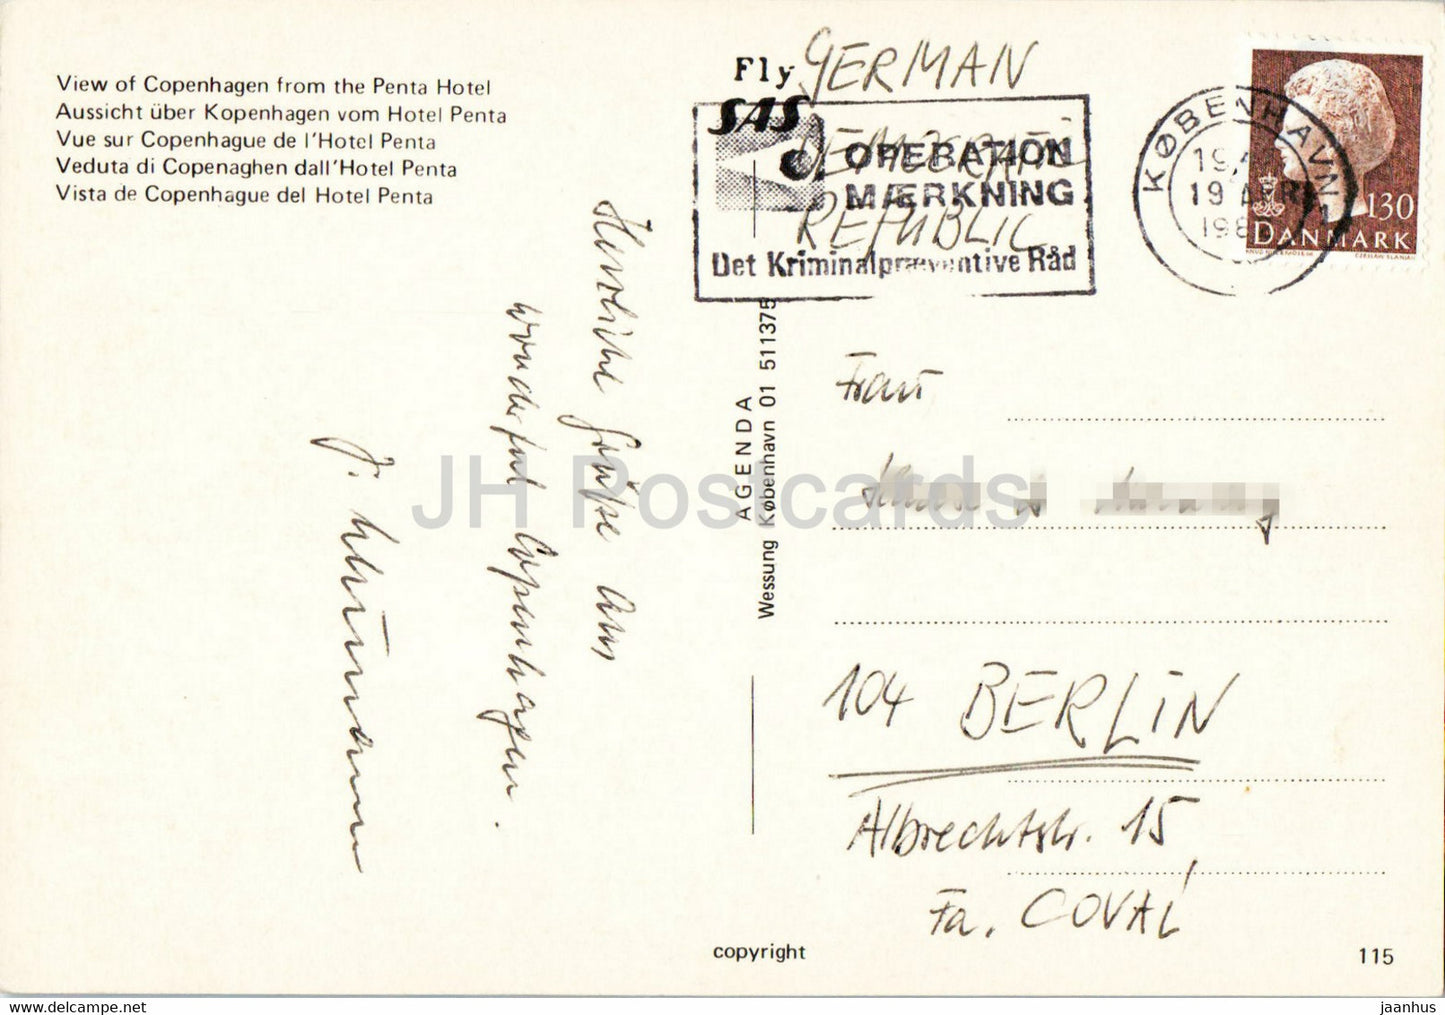 View of Copenhagen from the Penta Hotel
Aussicht über Kopenhagen vom Hotel Penta
Vue sur Copenhague de l'Hotel Penta
Veduta di Copenaghen dall'Hotel Penta
Vista de Copenhague del Hotel Penta
Fly
SAS
GERMAN
DEMOCRATIC
REPUBLIC
OPERATION
MÆRKNING
Det Kriminalpræventive Råd
KØBENHAVN
19 APR
130
DANMARK
Herzliche Grüße aus
wonderful Copenhagen.
AGENDA
Wessung København 01 511375
Frau
104 BERLIN
Albrechtstr. 15
Fa. COVAL
JH Postcards
copyright
115
www.delcampe.net
jaanhus